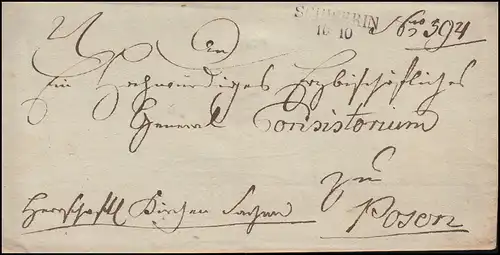 SCHWERIN
16 10
No 394
An
Ein Hochwürdiges Erzbischöfliches
General Consistorium
zu
Posen
Herrschaftl Kirchen Sachen